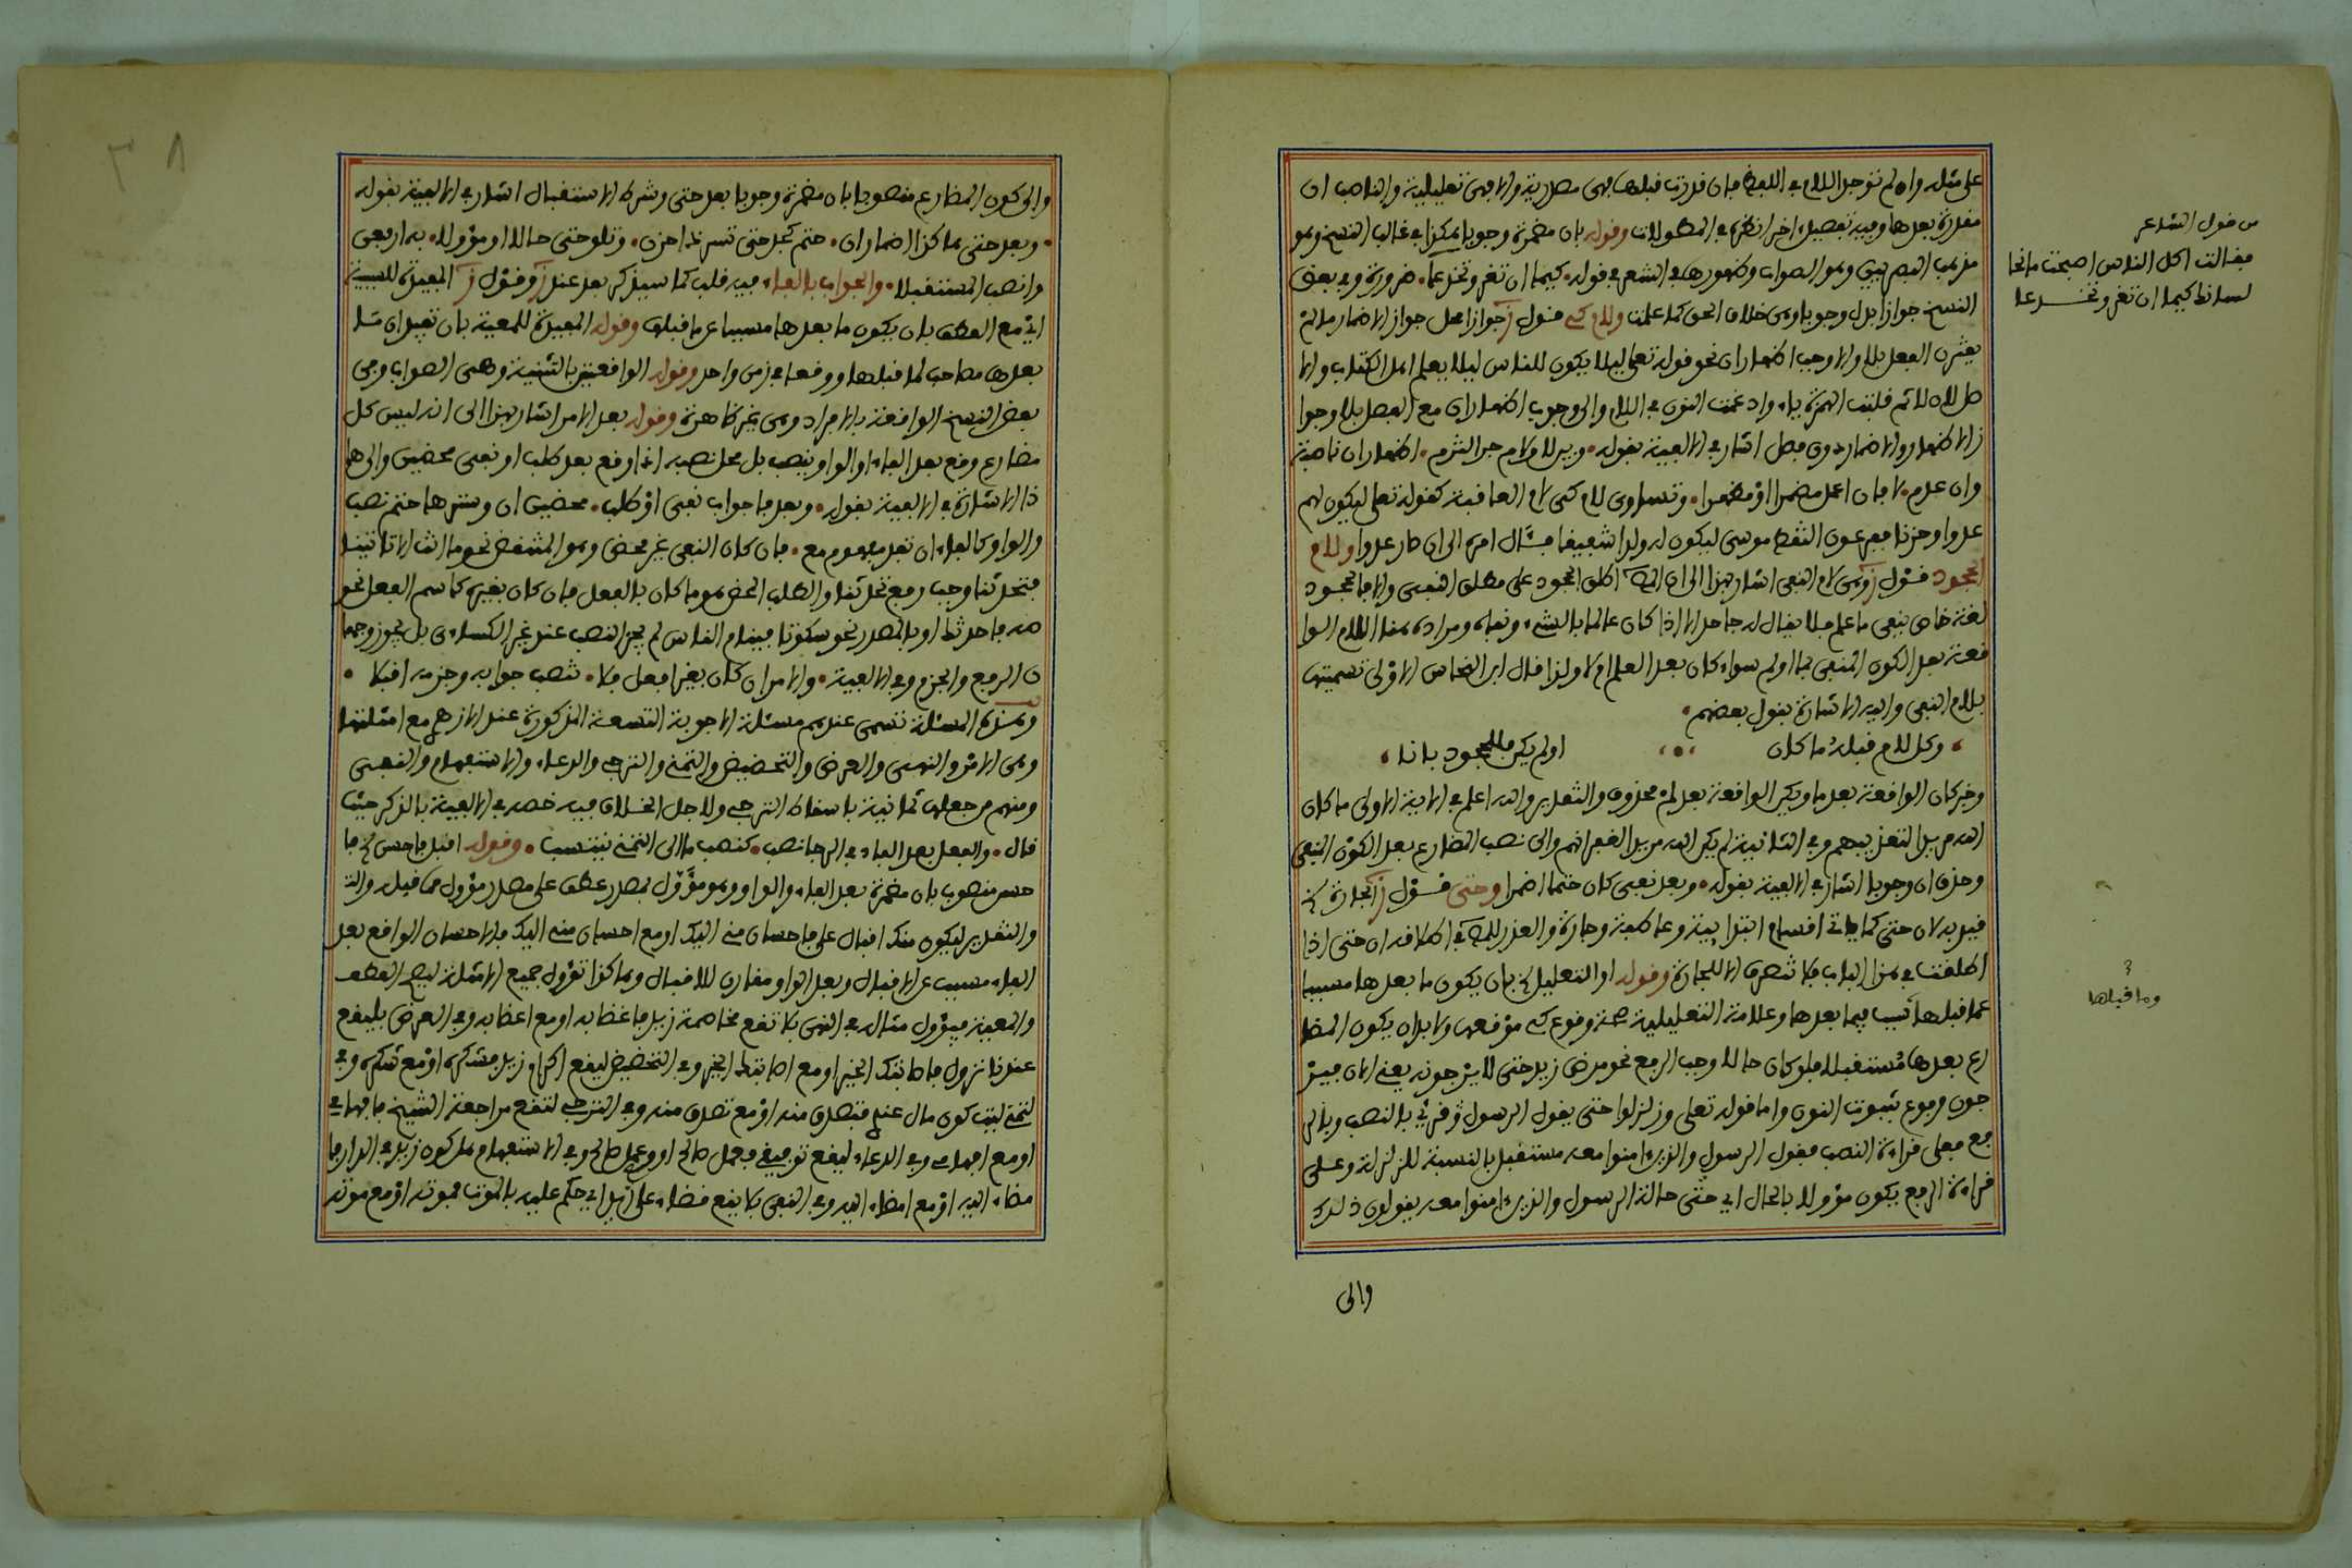 على مثله وان لم توجد اللام في اللفظ فان قدرت قبلها فهي مصدرية والا فهي تعليلية والناصب ان
مقدرة بعدها وفيه تفصيل اخر انظره في المطولات وقوله بان مضمرة وجوبا هكذا في غالب النسخ وهو
مذهب البصريين وهو الصواب وظهورها في الشعر في قوله كيما ان تغر وتخدعا ضرورة وفي بعض
النسخ جوازا بدل وجوبا وهي خلاف الحق كما علمت ولام كي قول ز جوازا محل جواز الاضمار ما لم
يقترن الفعل بلا والا وجب اظهار ان نحو قوله تعلى ليلا يكون للناس ليلا يعلم اهل الكتاب والا
صل لان لا ثم قلبت الهمزة ياء وادغمت النون في اللام والى وجوب اظهار ان مع الفصل بلا وجوا
ز الاظهار والاضمار دون فصل اشار في الالفية بقوله وبين لا ولام جر التزم اظهار ان ناصبة
وان عدم لا فان اعمل مضمرا او مظهرا وتساوي لام كي لام العاقبة كقوله تعلى ليكون لهم
عدوا وحزنا ففرعون التقط موسى ليكون له ولدا شفيقا فئال امره الى ان صار عدوا ولام
الجحود قول ز وهي لام النفي اشار بهذا الى ان المص اطلق الجحود على مطلق النفي والا فالجحود
لغة خاص بنفي ما علم فلا يقال له جاحد الا اذا كان عالما بالشيء ونفاه ومراده هنا اللام الوا
قعة بعد الكون المنفي بما او لم سواء كان بعد العلم ام لا ولذا قال ابن النحاس الاولى تسميتها
بلام النفي واليه الاشارة بقول بعضهم
وكل لام قبله ما كان او لم يكن فللجحود بانا
وخبر كان الواقعة بعد ما ويكن الواقعة بعد لم محذوف والتقدير والله اعلم في الاية الاولى ما كان
الله مريدا لتعذيبهم وفي الثانية لم يكن الله مريدا لغفرانهم والى نصب المضارع بعد الكون المنفي
وحذف ان وجوبا اشار في الالفية بقوله وبعد نفي كان حتما اضمرا وحتى قول ز الجارة
قيد به لان حتى كما ياتي اقسام ابتدايية وعاطفة وجارة والعذر للمص في اطلاقه ان حتى اذا
اطلقت في هذا الباب فلا تنصرف الا للجارة وقوله او التعليل بان يكون ما بعدها مسببا
عما قبلها سببا فيما بعدها وعلامة التعليلية صحة وقوع كي موقعها ولا بد ان يكون المضا
رع بعدها مستقبلا فلو كان حالا وجب الرفع نحو مرض زيد حتى لا يرجونه يعني الان فيتر
جون مرفوع بثبوت النون واما قوله تعلى وزلزلوا حتى يقول الرسول فقرئ بالنصب وبالر
فع فعلى قراءة النصب فقول الرسول والذين امنوا معه مستقبل بالنسبة للزلزال وعلى
قراءة الرفع يكون مؤولا بالحال اي حتى حالة الرسول والذين امنوا معه يقولون ذلك
والى
من قول الشاعر
فقالت اكل الناس اصبحت مانحا
لسانك كيما ان تغر وتخدعا
وما قبلها
والى كون المضارع منصوبا بان مضمرة وجوبا بعد حتى وشرط الاستقبال اشار في الالفية بقوله
وبعد حتى هاكذا اضمار ان حتم كجد حتى تسر ذا حزن وتلو حتى حالا او مؤولا به ارفعن
وانصب المستقبلا والجواب بالفاء فيه قلب كما سيذكره بعد عند ز وقول ز المفيدة للسببية
اي مع العطف بان يكون ما بعدها مسببا عن ما قبلها وقوله المفيدة للمعية بان تفيد ان مـا
بعدها مصاحب لما قبلها ووقعا في زمن واحد وقوله الواقعتين بالتثنية وهي الصواب وفي
بعض النسخ الواقعة بالافراد وهي غير ظاهرة وقوله بعد الامر اشار بهذا الى انه ليس كل
مضارع وقع بعد الفاء او الواو ينصب بل محل نصبه اذا وقع بعد طلب او نفي محضين والى ها
ذا الاشارة في الالفية بقوله وبعد فا جواب نفي او طلب محضين ان وسترها حتم نصب
والواو كالفاء ان تفد مفهوم مع فان كان النفي غير محض وهو المنتقض نحو ما انت الا تاتينا
فتحدثنا وجب رفع تحدثنا والطلب المحض هو ما كان بالفعل فان كان بغيره كاسم الفعل نحو
صه فاحدثك او بالمصدر نحو سكوتا فينام الناس لم يجز النصب عند غير الكساءي بل يجوز وجها
ن الرفع والجزم وفي الالفية والامر ان كان بغير افعل فلا تنصب جوابه وجزمه اقبلا
وهذه المسئلة تسمى عندهم مسئلة الاجوبة التسعة المذكورة عند الازهري مع امثلتها
وهي الامر والنهي والعرض والتحضيض والتمني والترجي والدعاء والاستفهام والنفي
ومنهم من جعلها ثمانية باسقاط الترجي ولاجل الخلاف فيه خصه في الالفية بالذكر حيث
قال والفعل بعد الفاء في الرجا نصب كنصب ما الى التمني ينتسب وقوله اقبل فاحسن فا
حسن منصوب بان مضمرة بعد الفاء والواو وهو مؤول بمصدر عطف على مصدر مؤول مما قبله
والتقدير ليكون منك اقبال علي فاحسان مني اليك او مع احسان مني اليك فالاحسان الواقع بعد
الفاء مسبب عن الاقبال وبعد الواو مقارن للاقبال وهاكذا تؤول جميع الامثلة ليصح العطف
والمعية فيؤول مثاله في النهي بلا تقع مخاصمة زيد فاغضابه او مع اغضابه وفي العرض بليقع
عندنا نزول فاصابتك الخير او مع اصابتك الخير وفي التحضيض ليقع اكرام زيد فشكره او مع شكره وفي ا
لتمني ليت كون مال عندي فتصدق منه او مع تصدق منه وفي الترجي لتقع مراجعة الشيخ فافهامي
او مع افهامي وفي الدعاء ليقع توفيقي فعمل صالح او وعمل صالح وفي الاستفهام هل كون زيد في الدار فا
مضاء اليه او مع امضاء اليه وفي النفي لا يقع قضاء على زيد اي حكم عليه بالموت فموته او مع موته